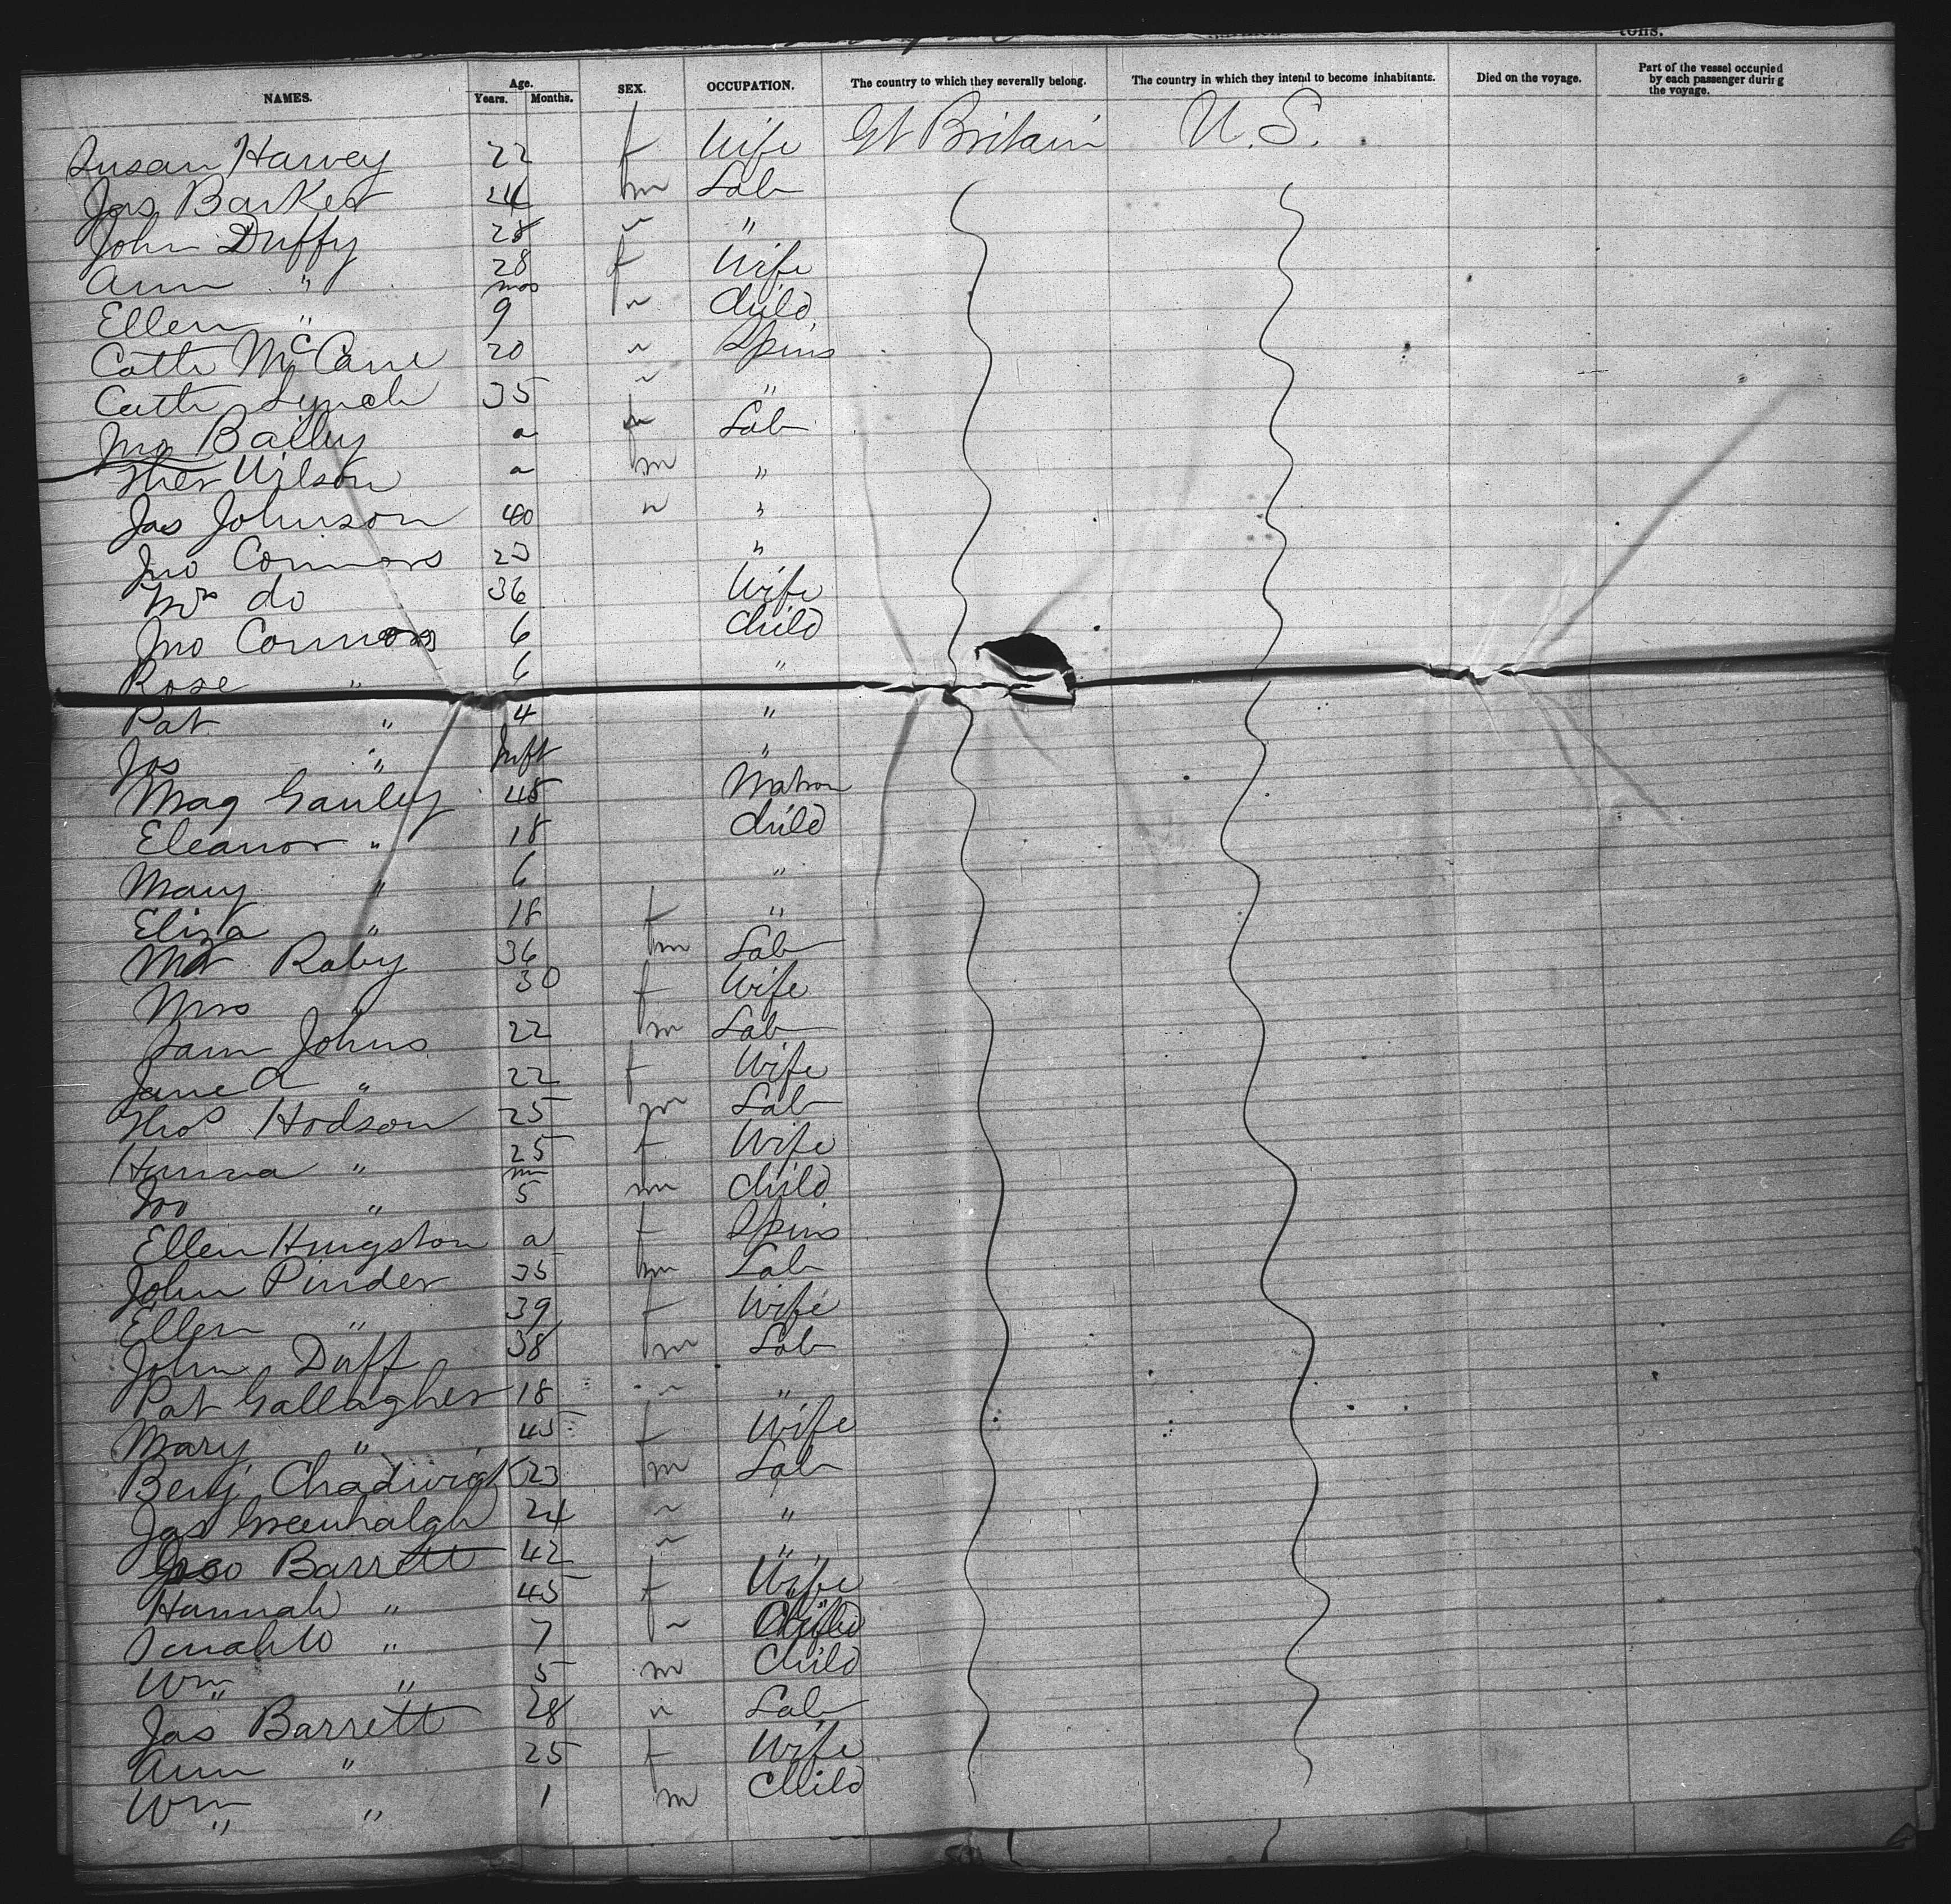 tons.
NAMES. Age. Years. Months. SEX. OCCUPATION. The country to which they severally belong. The country in which they intend to become inhabitants. Died on the voyage. Part of the vessel occupied by each passenger during the voyage.
Susan Harvey 22 f Wife Gt Britain U.S.
Jas Barker 24 m Lab
John Duffy 28 " "
Ann " 28 f Wife
Ellen " mos 9 " Child
Cath McCane 20 " Spins
Cath Lynch 35 " "
Bailey a Lab
Wilson a m "
Jas Johnson 40 " "
Jno Connors 23 "
Mrs do 36 Wife
Jno Connors 6 Child
Rose " 6 "
Pat " 4 "
Jas " Inft "
Mag Ganley 45 Matron
Eleanor " 18 Child
Mary " 6 "
Eliza " 18 f "
Mr Raby 36 m Lab
Mrs " 30 f Wife
Sam Johns 22 m Lab
Jane A " 22 f Wife
Thos Hodson 25 m Lab
Hanna " 25 f Wife
Jno " 5 m Child
Ellen Hingston a f Spins
John Pinder 35 m Lab
Ellen " 39 f Wife
John Duff 38 m Lab
Pat Gallagher 18 " "
Mary " 45 f Wife
Benj Chadwick 23 m Lab
Jas Greenhalgh 24 " "
Barrett 42 " "
Hannah " 45 f Wife
" 7 " Child
Wm " 5 m Child
Jas Barrett 28 " Lab
Ann " 25 f Wife
Wm " 1 m Child